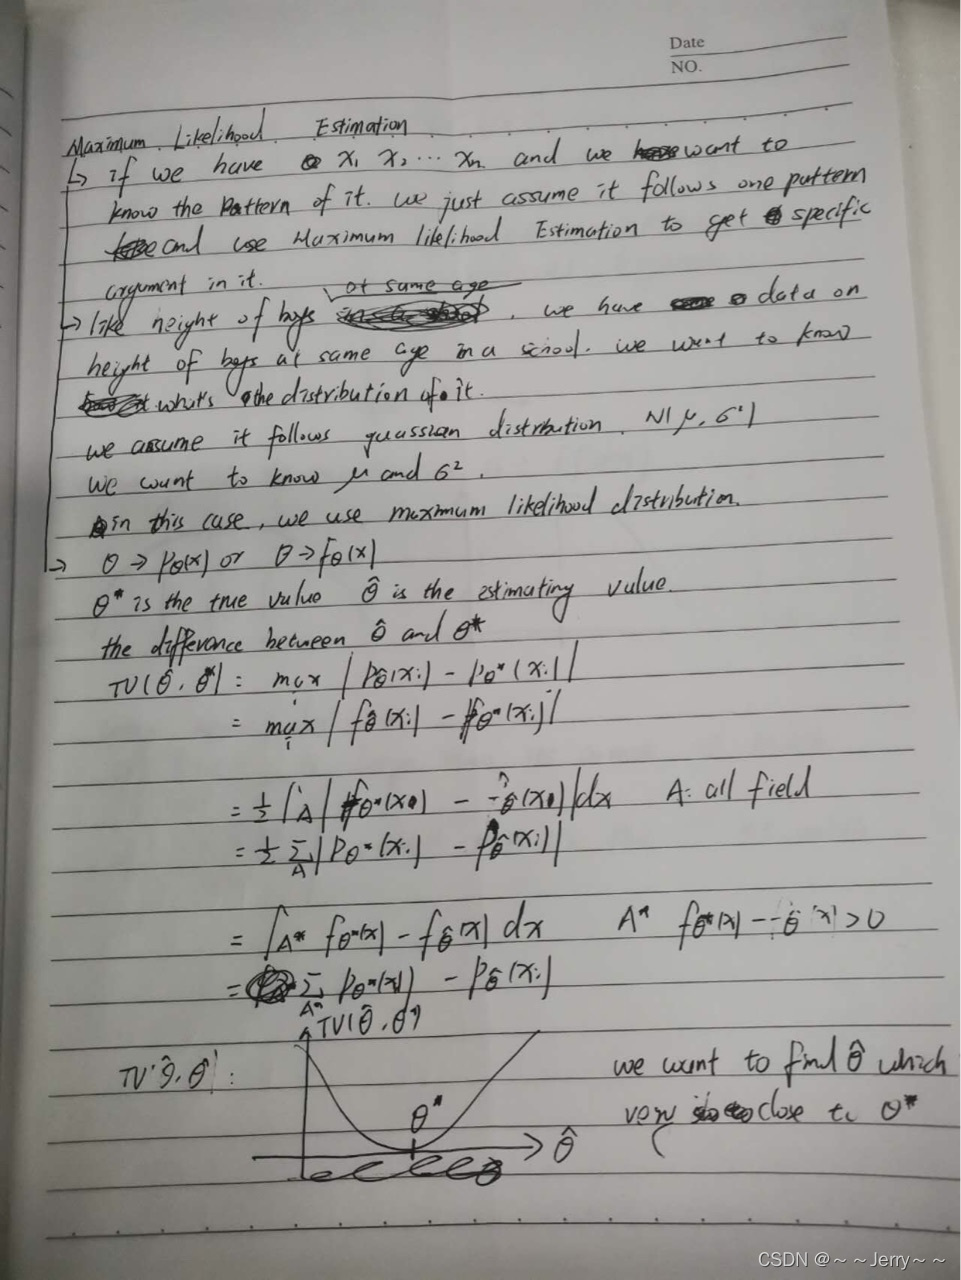 Date
NO.
Maximum Likelihood Estimation
↳ if we have x₁ x₂ ··· xₙ and we want to
know the pattern of it. we just assume it follows one puttern
and use Maximum likelihood Estimation to get specific
argument in it.
at same age
→ like height of boys , we have data on
height of boys at same age in a school. we want to know
what's the distribution of it.
we assume it follows guassian distribution N(μ, σ²)
We want to know μ and σ².
in this case, we use maximum likelihood distribution.
→ θ → pθ(x) or θ → fθ(x)
θ* is the true value θ̂ is the estimating value.
the difference between θ̂ and θ*
TV(θ̂, θ*) = max_i |pθ̂(xᵢ) - pθ*(xᵢ)|
= max_i |fθ̂(xᵢ) - fθ*(xᵢ)|
= ½ ∫_A |fθ*(x) - fθ̂(x)| dx A: all field
= ½ Σ_A |pθ*(xᵢ) - pθ̂(xᵢ)|
= ∫_A* fθ*(x) - fθ̂(x) dx A* fθ*(x) - fθ̂(x) > 0
= Σ_A* pθ*(xᵢ) - pθ̂(xᵢ)
TV(θ̂, θ*)
TV(θ̂, θ*): we want to find θ̂ which
θ* very close to θ*
θ̂
CSDN @~~Jerry~~